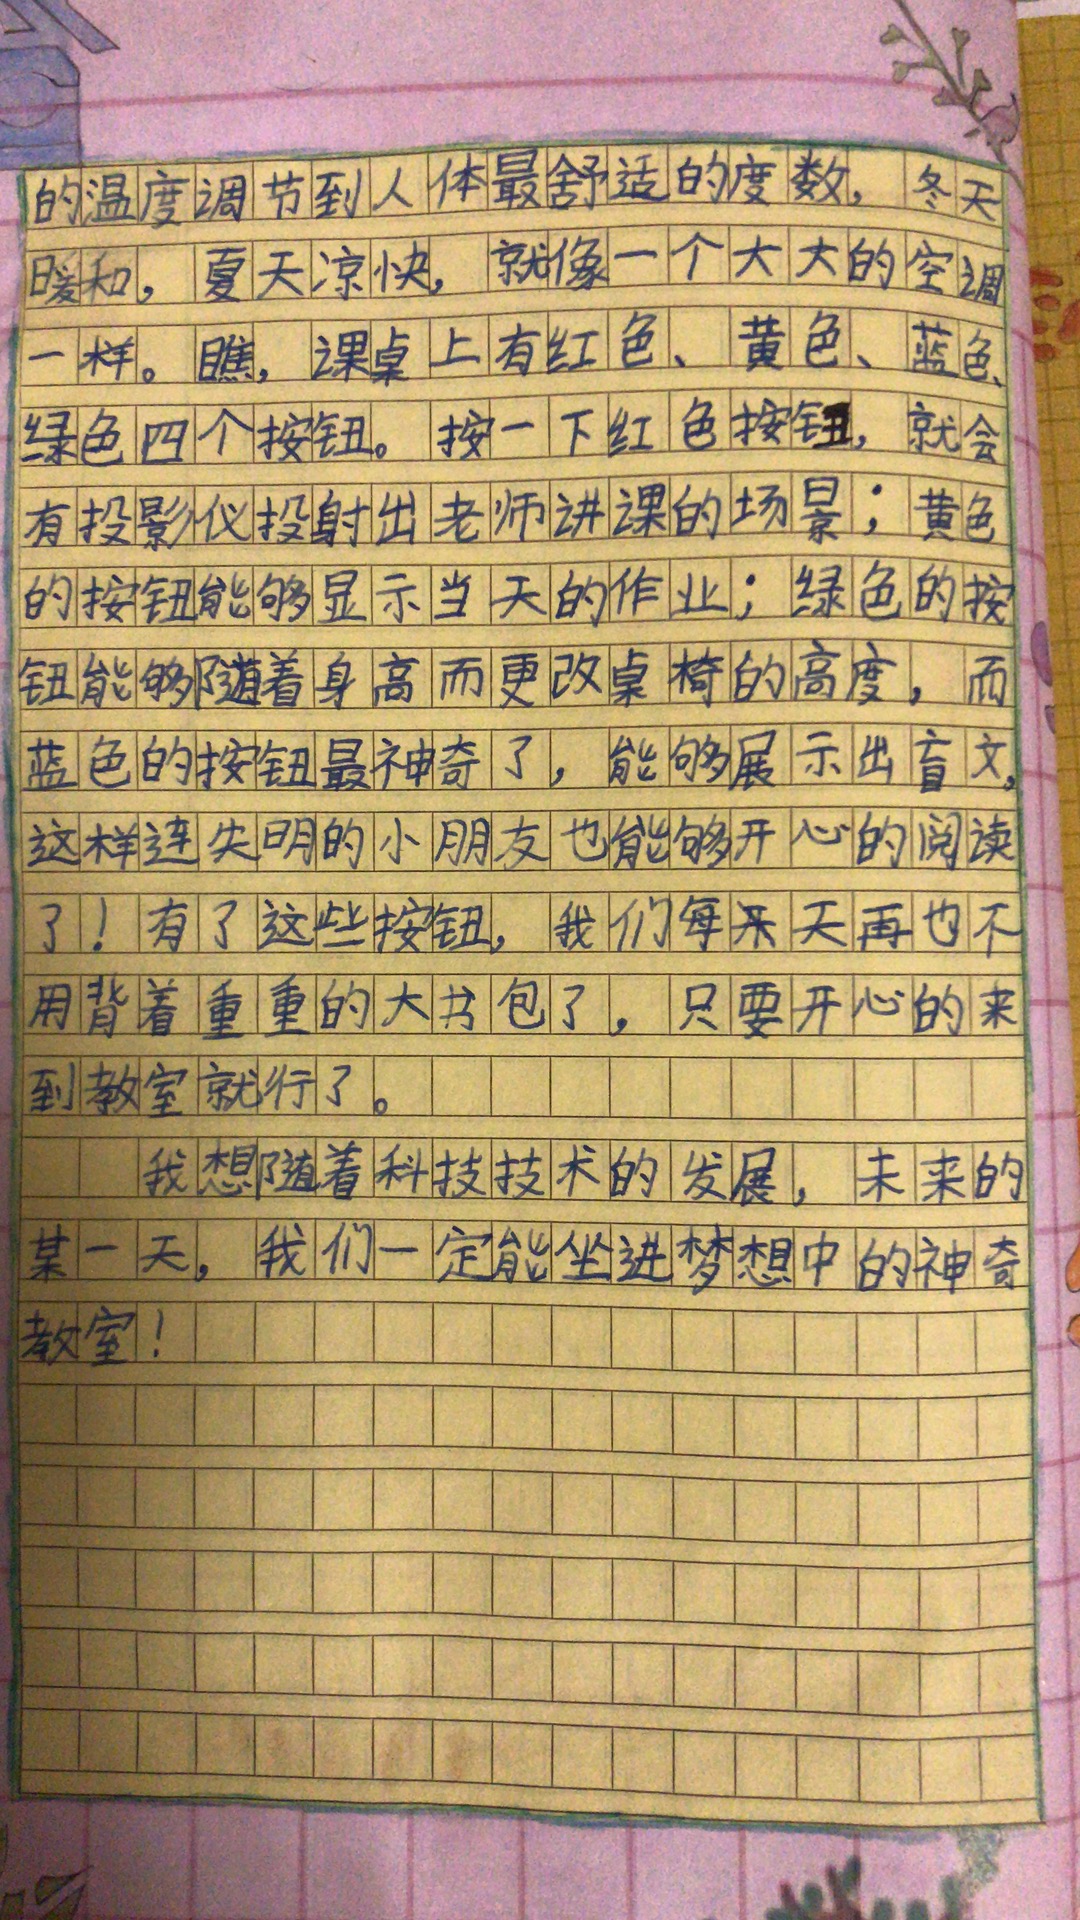 的温度调节到人体最舒适的度数，冬天
暖和，夏天凉快，就像一个大大的空调
一样。瞧，课桌上有红色、黄色、蓝色、
绿色四个按钮。按一下红色按钮，就会
有投影仪投射出老师讲课的场景；黄色
的按钮能够显示当天的作业；绿色的按
钮能够随着身高而更改桌椅的高度，而
蓝色的按钮最神奇了，能够展示出盲文，
这样连失明的小朋友也能够开心的阅读
了！有了这些按钮，我们每来天再也不
用背着重重的大书包了，只要开心的来
到教室就行了。
我想随着科技技术的发展，未来的
某一天，我们一定能坐进梦想中的神奇
教室！